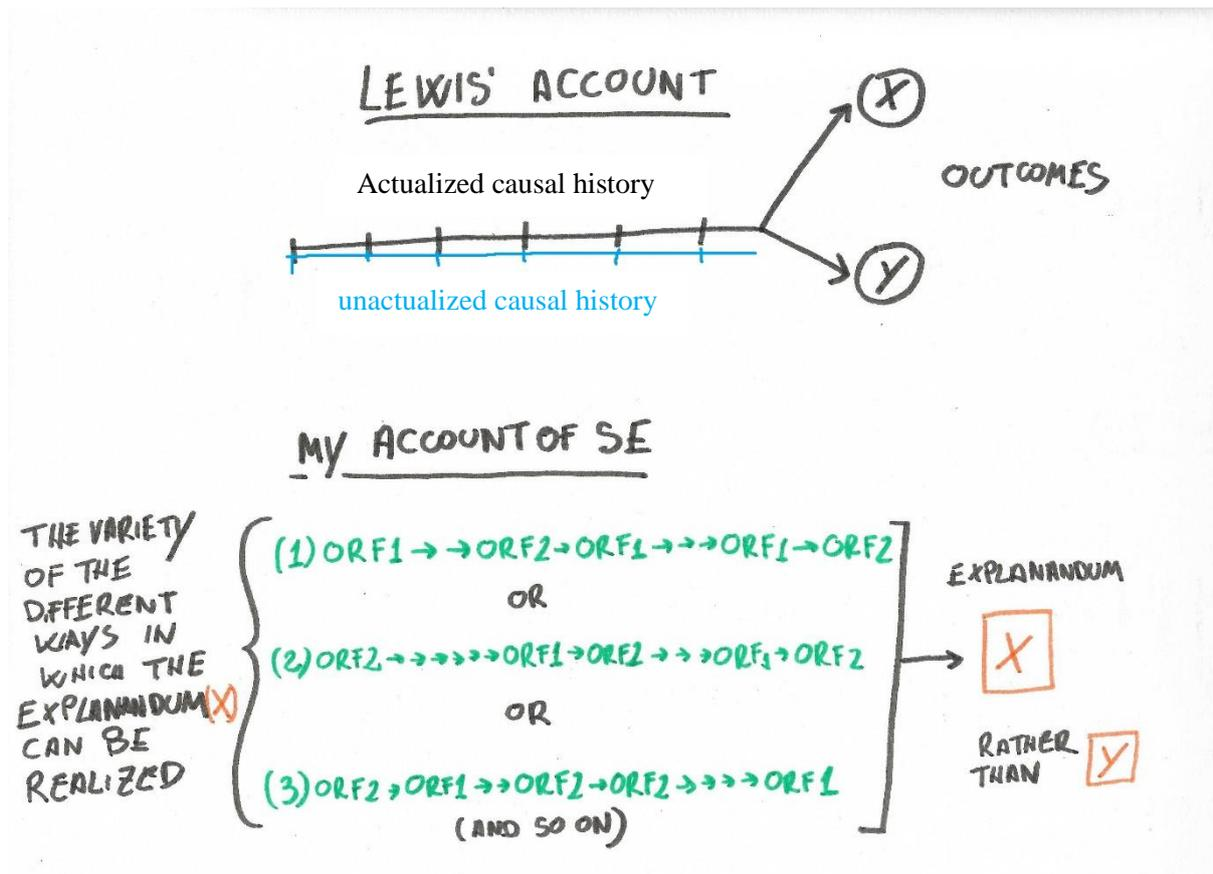 LEWIS' ACCOUNT
X
Actualized causal history
OUTCOMES
Y
unactualized causal history
MY ACCOUNT OF SE
THE VARIETY
OF THE
DIFFERENT
WAYS IN
WHICH THE
EXPLANANDUM(X)
CAN BE
REALIZED
(1) ORF1 → → ORF2 → ORF1 → → → ORF1 → ORF2
OR
(2) ORF2 → → → → → → ORF1 → ORF2 → → → ORF1 → ORF2
OR
(3) ORF2 → ORF1 → → ORF2 → ORF2 → → → → ORF1
(AND SO ON)
EXPLANANDUM
X
RATHER
THAN Y